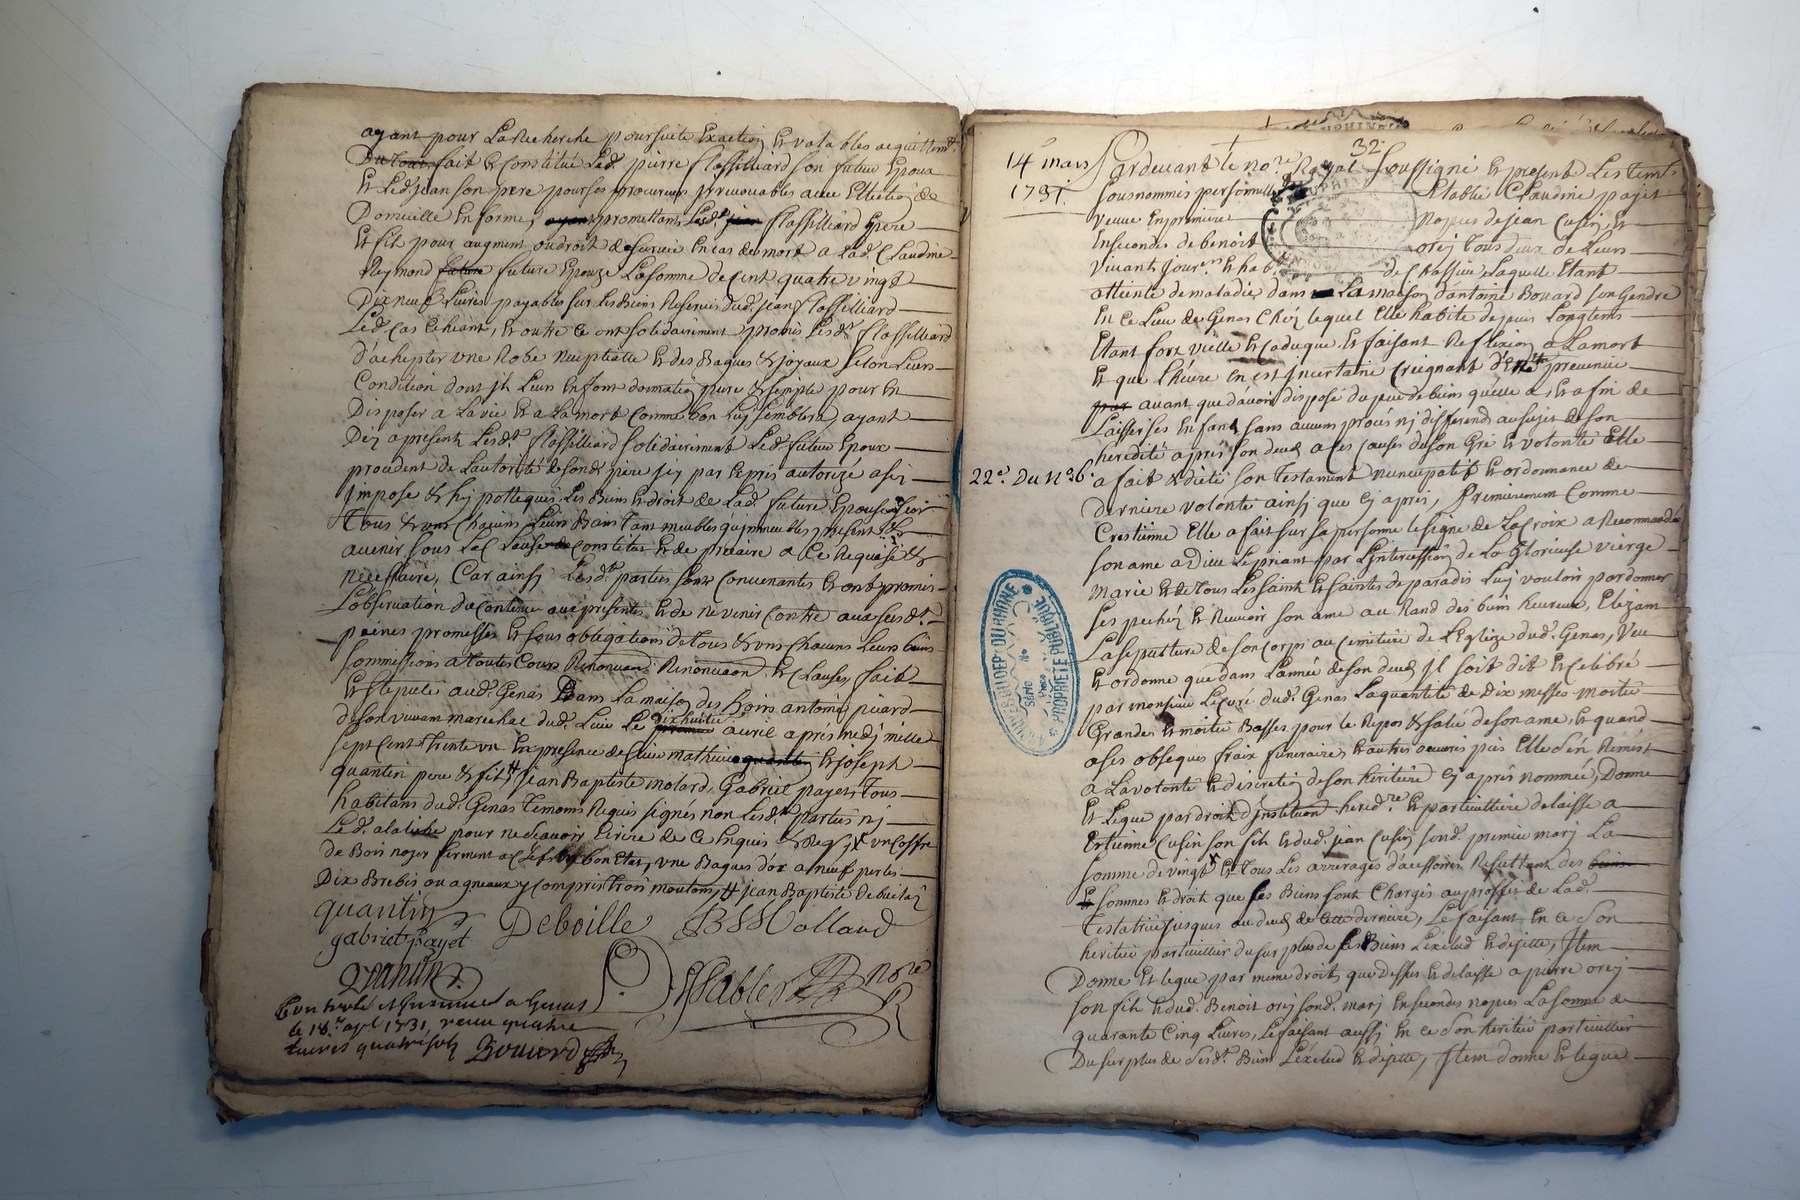 ayant pour La Recherche poursuite Exaction Et valables acquittemt.
Du tout fait Et Constitué Led. pierre flassilliard son futur Epoux
Et Led. jean son pere pour ses procureurs jrrevocables avec Election de
Domicille En forme, promettant Lesdt. flassilliard pere
Et fil pour augment ou droit de survie En cas de mort a Lad. Claudine
Reymond future Epouze La somme de Cent quatre vingt
Dix neuf Livres payables sur Les Biens Reservés dud. jean flassilliard
Led. Cas Echeant, Et outre ce ont solidairement promis Lesdt. flassilliard
d'achepter une Robe nuiptialle Et des Bagues & joyaux selon Leur
Condition dont jls Luy En font donnation pure & simple pour En
Disposer a La vie Et a La mort Comme bon Luy semblera, ayant
Dez a present Lesdt. flassilliard solidairement Led. futur Epoux
procedant de L'autorité de sond. pere sey par Et pris autorize assis
jmpose & hypottequé Les Biens Et droit de Lad. future Epouse sur
Tous & uns Chacuns Leurs Biens Tant meubles qu'jmmeubles presents &
avenir sous La Clause de Constitut Et de precaire a Ce Requise &
necessaire, Car ainsy Lesdt. parties sont Convenantes Et ont promis
L'observation du Contenu aux presentes Et de ne venir Contre aux susdt.
peines promesses Et sous obligations de tous & uns Chacuns Leurs biens
sommissions a toutes Cours Renonçant Renonciaon. Et Clauses, fait
Et stipulé aud. Genas Dans La maison des hoirs antoine picard
de son vivant marechal dud. Lieu Le dixhuitie avril apres midy mille
sept Cent trente un En presence de sieur mathieu Et joseph
quantin pere & fil # jean Baptiste molard, Gabriel payet, Tous
habitans dud. Genas Temoins Requis signés non Lesdt. parties nj
Led. pour ne sçavoir Ecrire de Ce Enquis & Req. un Coffre
de Bois noyer fermant a Clef bon Etat, une Bague d'or a neuf perles
Dix Brebis ou agneaux y Compris trois moutons, # jean Baptiste Debuilas
quantin Deboille JB Mollard
gabriel payet
quantin Sablet nore
R
Controllé et Insinué a Genas
le 18e. apl 1731, receu quatre
livres quatre sols Bouvard
32
14e mars
1731.
Pardevant le nore. Royal soussigné Et present Les tems.
sousnommés personnelle Etablie Claudine pajet
veuve En premiere Nopces de jean Cusin, Et
En secondes de benoit orij tous deux de Leurs
vivant jourrs. Et hab. de Chassieu, Laquelle Etant
atteinte de maladie, dans La maison d'antoine Bouard son Gendre
En Ce Lieu de Genas Chez Lequel Elle habite depuis Longtems
Etant fort vielle Et Caduque, Et faisant Reflexion a La mort
Et que L'heure En est jncertaine Creignant d'En prevenue
par avant que d'avoir disposé du peu de biens qu'elle a, Et afin de
Laisser ses Enfans sans aucun procés nj differend au sujet de son
heredité après son deces a Ces Causes de son Gré Et volonté Elle
22e. Du No. 6. a fait & dicté son Testament nuncupatif Et ordonnance de
derniere volonté ainsy que Cy apres, Premierement Comme
Crestienne Elle a fait sur sa personne le signe de La Croix a Recommandé
son ame a Dieu Le priant par L'intercession de La Glorieuse vierge
Marie Et de tous Les saints Et saintes de paradis Luy vouloir pardonner
ses pechés Et Recevoir son ame au Rand des biens heureux, Elizant
La sepulture de son Corps au Cemitiere de L'Eglize dud. Genas, Veu
Et ordonne que dans L'année de son deces jl soit dit Et Celébré
par monsieur Le Curé dud. Genas La quantité de Dix messes moitié
Grandes Et moitié Basses pour le Repos & salut de son ame, Et quand
a ses obseques fraix funeraires Et autres oeuvres pies Elle s'En Remest
a La volonté Et discretion de son heritiere Cy aprés nommée, Donne
Et Legue par droit d'jnstitution heredre. Et particulliere delaisse a
Estienne Cusin son fils Et dud. jean Cusin sond. premier marj La
somme de vingt Et tous Les arrerages d'accessoires Resultant des biens
Et sommes Et droit que ses Biens sont Chargés au proffit de Lad.
Testatrice jusques au deces de Cette derniere, Le faisant En ce son
heritier particullier du surplus de ses Biens L'exclud Et dejette, jtem
Donne Et Legue par meme droit que Dessus Et delaisse a pierre orij
son fils Et dud. Benoit orij sond. marj En secondes nopces La somme de
quarante Cinq Livres, Le faisant aussy En ce son heritier particullier
Du surplus de Sesdt. Biens L'exclud Et dejette, jtem donne Et legue
ARCHIVES DU DEP. DU RHONE
PROPRIETE PUBLIQUE
Série No
Pièce